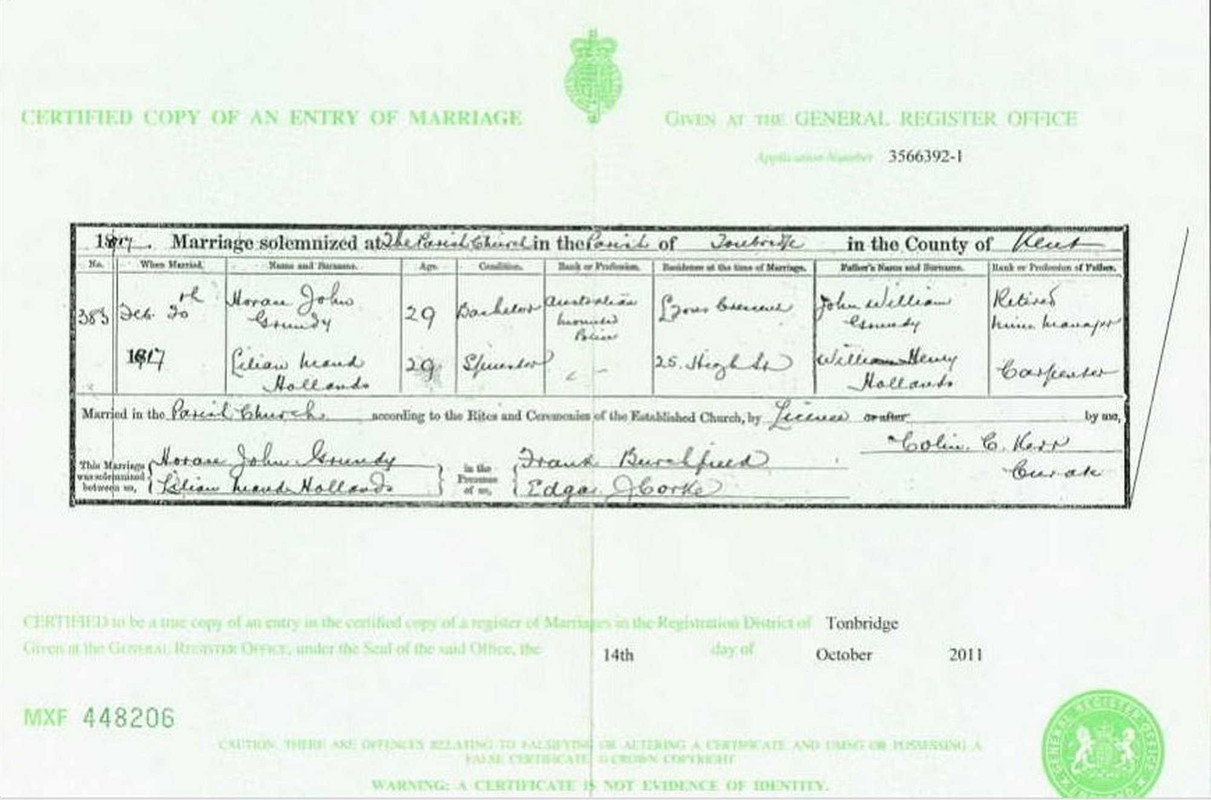 CERTIFIED COPY OF AN ENTRY OF MARRIAGE
GIVEN AT THE GENERAL REGISTER OFFICE
Application Number 3566392-1
1917. Marriage solemnized at The Parish Church in the Parish of Tonbridge in the County of Kent
No. When Married. Name and Surname. Age. Condition. Rank or Profession. Residence at the time of Marriage. Father's Name and Surname. Rank or Profession of Father.
383 Feb. 20th 1917
Horace John Grundy 29 Bachelor Australian Mounted Police Crescent John William Grundy Retired Mine Manager
Lilian Maud Hollands 29 Spinster — 25. High St William Henry Hollands Carpenter
Married in the Parish Church according to the Rites and Ceremonies of the Established Church, by Licence or after by me,
Colin. C. Kerr
Curate
This Marriage was solemnized between us,
Horace John Grundy
Lilian Maud Hollands
in the Presence of us,
Frank Burchfield
Edgar J Corke
CERTIFIED to be a true copy of an entry in the certified copy of a register of Marriages in the Registration District of Tonbridge
Given at the GENERAL REGISTER OFFICE, under the Seal of the said Office, the 14th day of October 2011
MXF 448206
CAUTION: THERE ARE OFFENCES RELATING TO FALSIFYING OR ALTERING A CERTIFICATE AND USING OR POSSESSING A
FALSE CERTIFICATE © CROWN COPYRIGHT
WARNING: A CERTIFICATE IS NOT EVIDENCE OF IDENTITY.
GENERAL REGISTER OFFICE